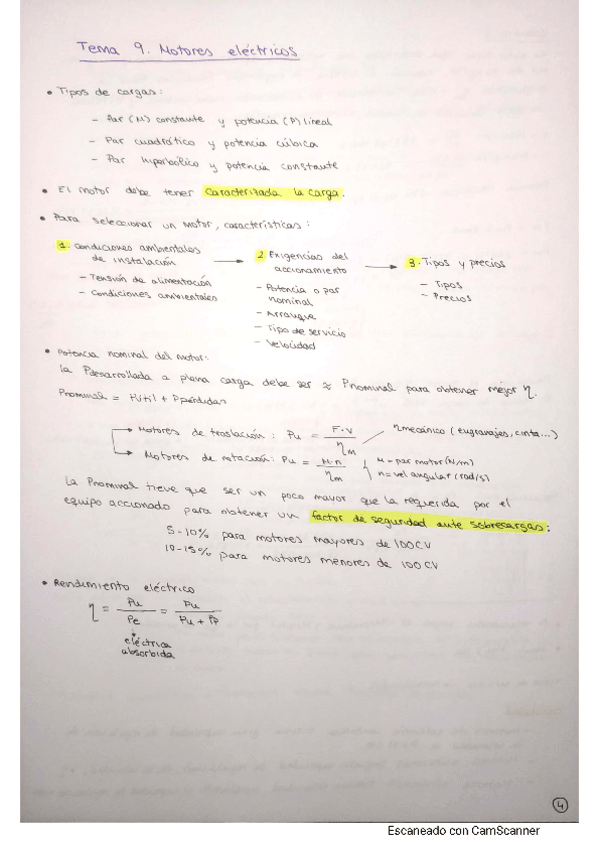 Tema 9. Motores eléctricos
• Tipos de cargas:
- Par (M) constante y potencia (P) lineal
- Par cuadrático y potencia cúbica
- Par hiperbólico y potencia constante
• El motor debe tener caracterizada la carga.
• Para seleccionar un motor, características:
1. Condiciones ambientales de instalación
- Tensión de alimentación
- Condiciones ambientales
→ 2. Exigencias del accionamiento
- Potencia o par nominal
- Arranque
- Tipo de servicio
- Velocidad
→ 3. Tipos y precios
- Tipos
- Precios
• Potencia nominal del motor:
la Pdesarrollada a plena carga debe ser ≈ Pnominal para obtener mejor η.
Pnominal = Pútil + Ppérdidas
→ Motores de traslación: Pu = F·V / ηm
ηmecánico (engranajes, cinta...)
→ Motores de rotación: Pu = M·n / ηm
M = par motor (N/m)
n = vel angular (rad/s)
la Pnominal tiene que ser un poco mayor que la requerida por el
equipo accionado para obtener un factor de seguridad ante sobrecargas:
5-10% para motores mayores de 100CV
10-15% para motores menores de 100CV
• Rendimiento eléctrico
η = Pu / Pe = Pu / Pu + Pp
eléctrica
absorbida
4
Escaneado con CamScanner